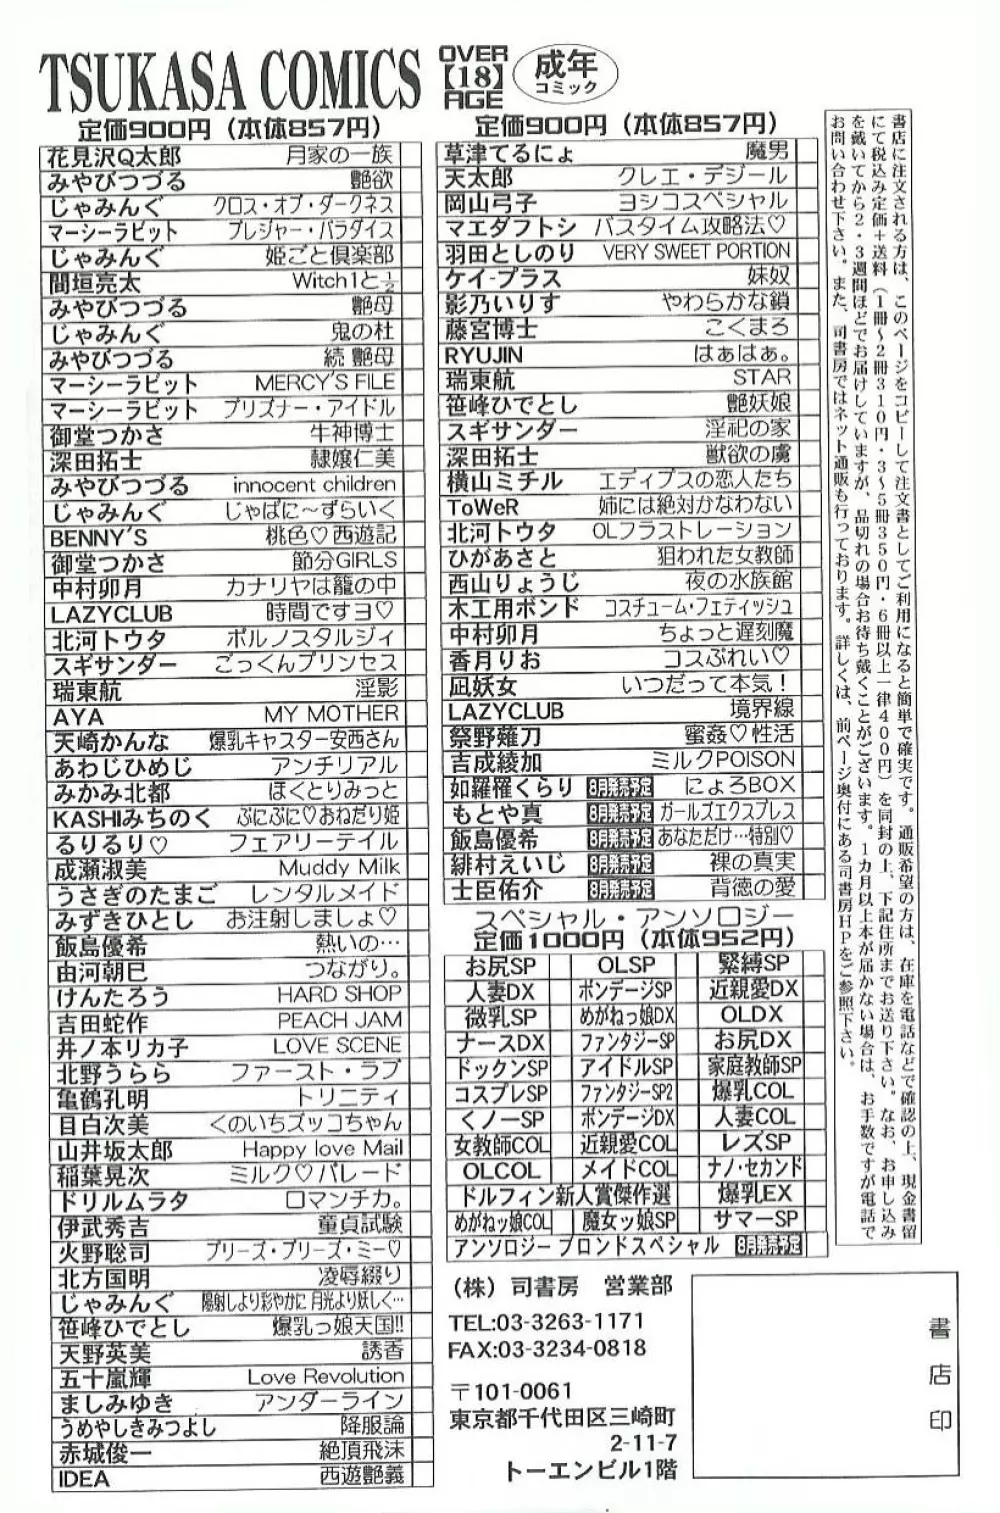 TSUKASA COMICS
OVER
【18】
AGE
成年
コミック
定価900円（本体857円）
花見沢Q太郎 月家の一族
みやびつづる 艶欲
じゃみんぐ クロス・オブ・ダークネス
マーシーラビット プレジャー・パラダイス
じゃみんぐ 姫ごと倶楽部
間垣亮太 Witch1と½
みやびつづる 艶母
じゃみんぐ 鬼の杜
みやびつづる 続 艶母
マーシーラビット MERCY'S FILE
マーシーラビット プリズナー・アイドル
御堂つかさ 牛神博士
深田拓士 隷嬢仁美
みやびつづる innocent children
じゃみんぐ じゃぱに〜ずらいく
BENNY'S 桃色♡西遊記
御堂つかさ 節分GIRLS
中村卯月 カナリヤは籠の中
LAZYCLUB 時間ですヨ♡
北河トウタ ポルノスタルジィ
スギサンダー ごっくんプリンセス
瑞東航 淫影
AYA MY MOTHER
天崎かんな 爆乳キャスター安西さん
あわじひめじ アンチリアル
みかみ北都 ほくとりみっと
KASHIみちのく ぷにぷに♡おねだり姫
るりるり♡ フェアリーテイル
成瀬淑美 Muddy Milk
うさぎのたまご レンタルメイド
みずきひとし お注射しましょ♡
飯島優希 熱いの…
由河朝巳 つながり。
けんたろう HARD SHOP
吉田蛇作 PEACH JAM
井ノ本リカ子 LOVE SCENE
北野うらら ファースト・ラブ
亀鶴孔明 トリニティ
目白次美 くのいちズッコちゃん
山井坂太郎 Happy love Mail
稲葉晃次 ミルク♡パレード
ドリルムラタ ロマンチカ。
伊武秀吉 童貞試験
火野聡司 プリーズ・プリーズ・ミー♡
北方国明 凌辱綴り
じゃみんぐ 陽射しより彩やかに 月光より妖しく…
笹峰ひでとし 爆乳っ娘天国!!
天野英美 誘香
五十嵐輝 Love Revolution
ましみゆき アンダーライン
うめやしきみつよし 降服論
赤城俊一 絶頂飛沫
IDEA 西遊艶義
定価900円（本体857円）
草津てるにょ 魔男
天太郎 クレエ・デジール
岡山弓子 ヨシコスペシャル
マエダフトシ バスタイム攻略法♡
羽田としのり VERY SWEET PORTION
ケイ-プラス 妹奴
影乃いりす やわらかな鎖
藤宮博士 こくまろ
RYUJIN はぁはぁ。
瑞東航 STAR
笹峰ひでとし 艶妖娘
スギサンダー 淫祀の家
深田拓士 獣欲の虜
横山ミチル エディプスの恋人たち
ToWeR 姉には絶対かなわない
北河トウタ OLフラストレーション
ひがあさと 狙われた女教師
西山りょうじ 夜の水族館
木工用ボンド コスチューム・フェティッシュ
中村卯月 ちょっと遅刻魔
香月りお コスぷれい♡
凪妖女 いつだって本気！
LAZYCLUB 境界線
祭野薙刀 蜜姦♡性活
吉成綾加 ミルクPOISON
如羅罹くらり 8月発売予定 にょろBOX
もとや真 8月発売予定 ガールズエクスプレス
飯島優希 8月発売予定 あなただけ…特別♡
緋村えいじ 8月発売予定 裸の真実
士臣佑介 8月発売予定 背徳の愛
スペシャル・アンソロジー
定価1000円（本体952円）
お尻SP OLSP 緊縛SP
人妻DX ボンデージSP 近親愛DX
微乳SP めがねっ娘DX OLDX
ナースDX ファンタジーSP お尻DX
ドックンSP アイドルSP 家庭教師SP
コスプレSP ファンタジーSP2 爆乳COL
くノーSP ボンデージDX 人妻COL
女教師COL 近親愛COL レズSP
OLCOL メイドCOL ナノ・セカンド
ドルフィン新人賞傑作選 爆乳EX
めがねッ娘COL 魔女ッ娘SP サマーSP
アンソロジー ブロンドスペシャル 8月発売予定
書店に注文される方は、このページをコピーして注文書としてご利用になると簡単で確実です。通販希望の方は、在庫を電話などで確認の上、現金書留
にて税込み定価＋送料（1冊〜2冊310円・3〜5冊350円・6冊以上一律400円）を同封の上、下記住所までお送り下さい。なお、お申し込み
を戴いてから2・3週間ほどでお届けしていますが、品切れの場合お待ち戴くことがございます。1カ月以上本が届かない場合は、お手数ですが電話で
お問い合わせ下さい。また、司書房ではネット通販も行っております。詳しくは、前ページ奥付にある司書房HPをご参照下さい。
（株）司書房 営業部
TEL:03-3263-1171
FAX:03-3234-0818
〒101-0061
東京都千代田区三崎町
2-11-7
トーエンビル1階
書店印